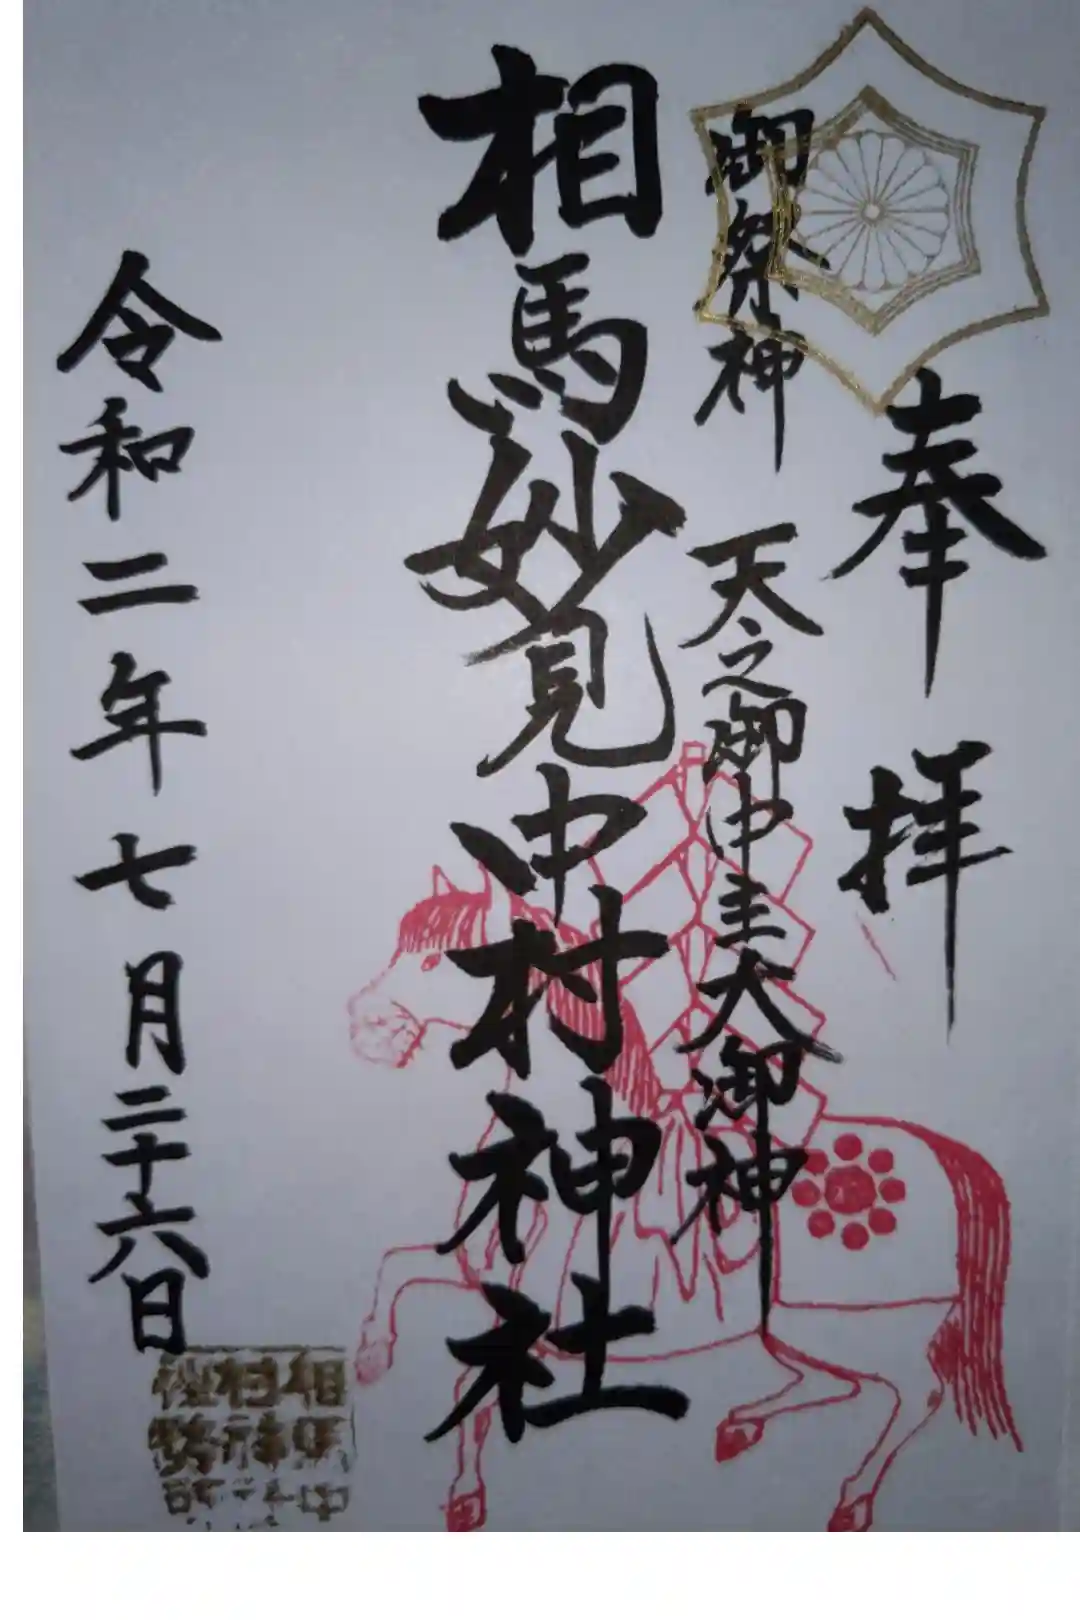 奉拝
御祭神 天之御中主大御神
相馬妙見中村神社
令和二年七月二十六日
相馬中
村神社